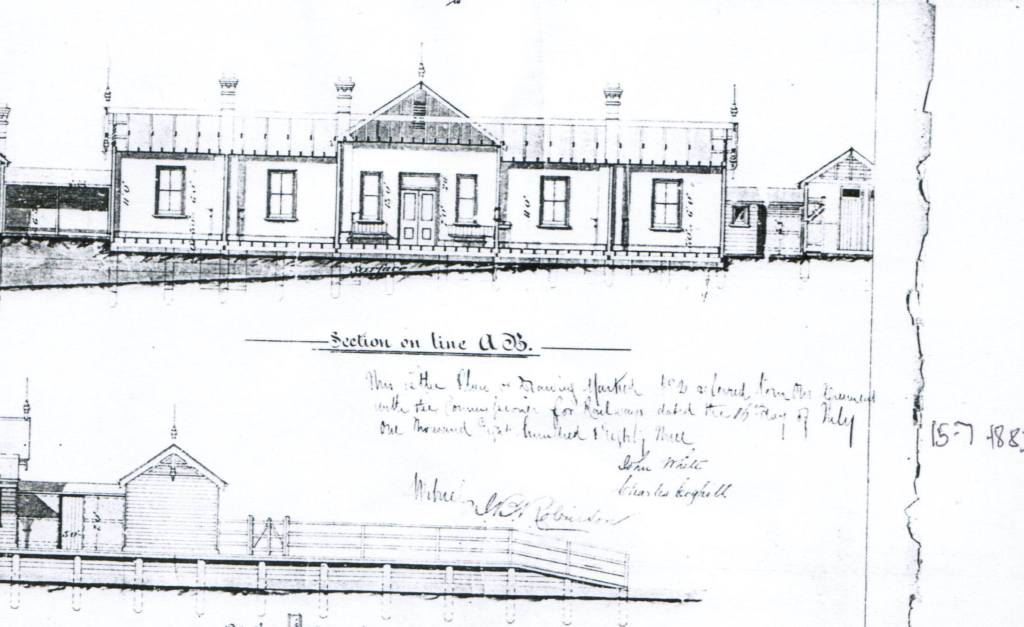 11'0"
11'0"
surface
Section on line A B.
This is the Plan or Drawing Marked No 2 referred to in our Agreement
with the Commissioner for Railways dated the 16th day of July
One thousand Eight hundred & Eighty three
John White
Charles Coghill
Witness
Robinson
15-7 188